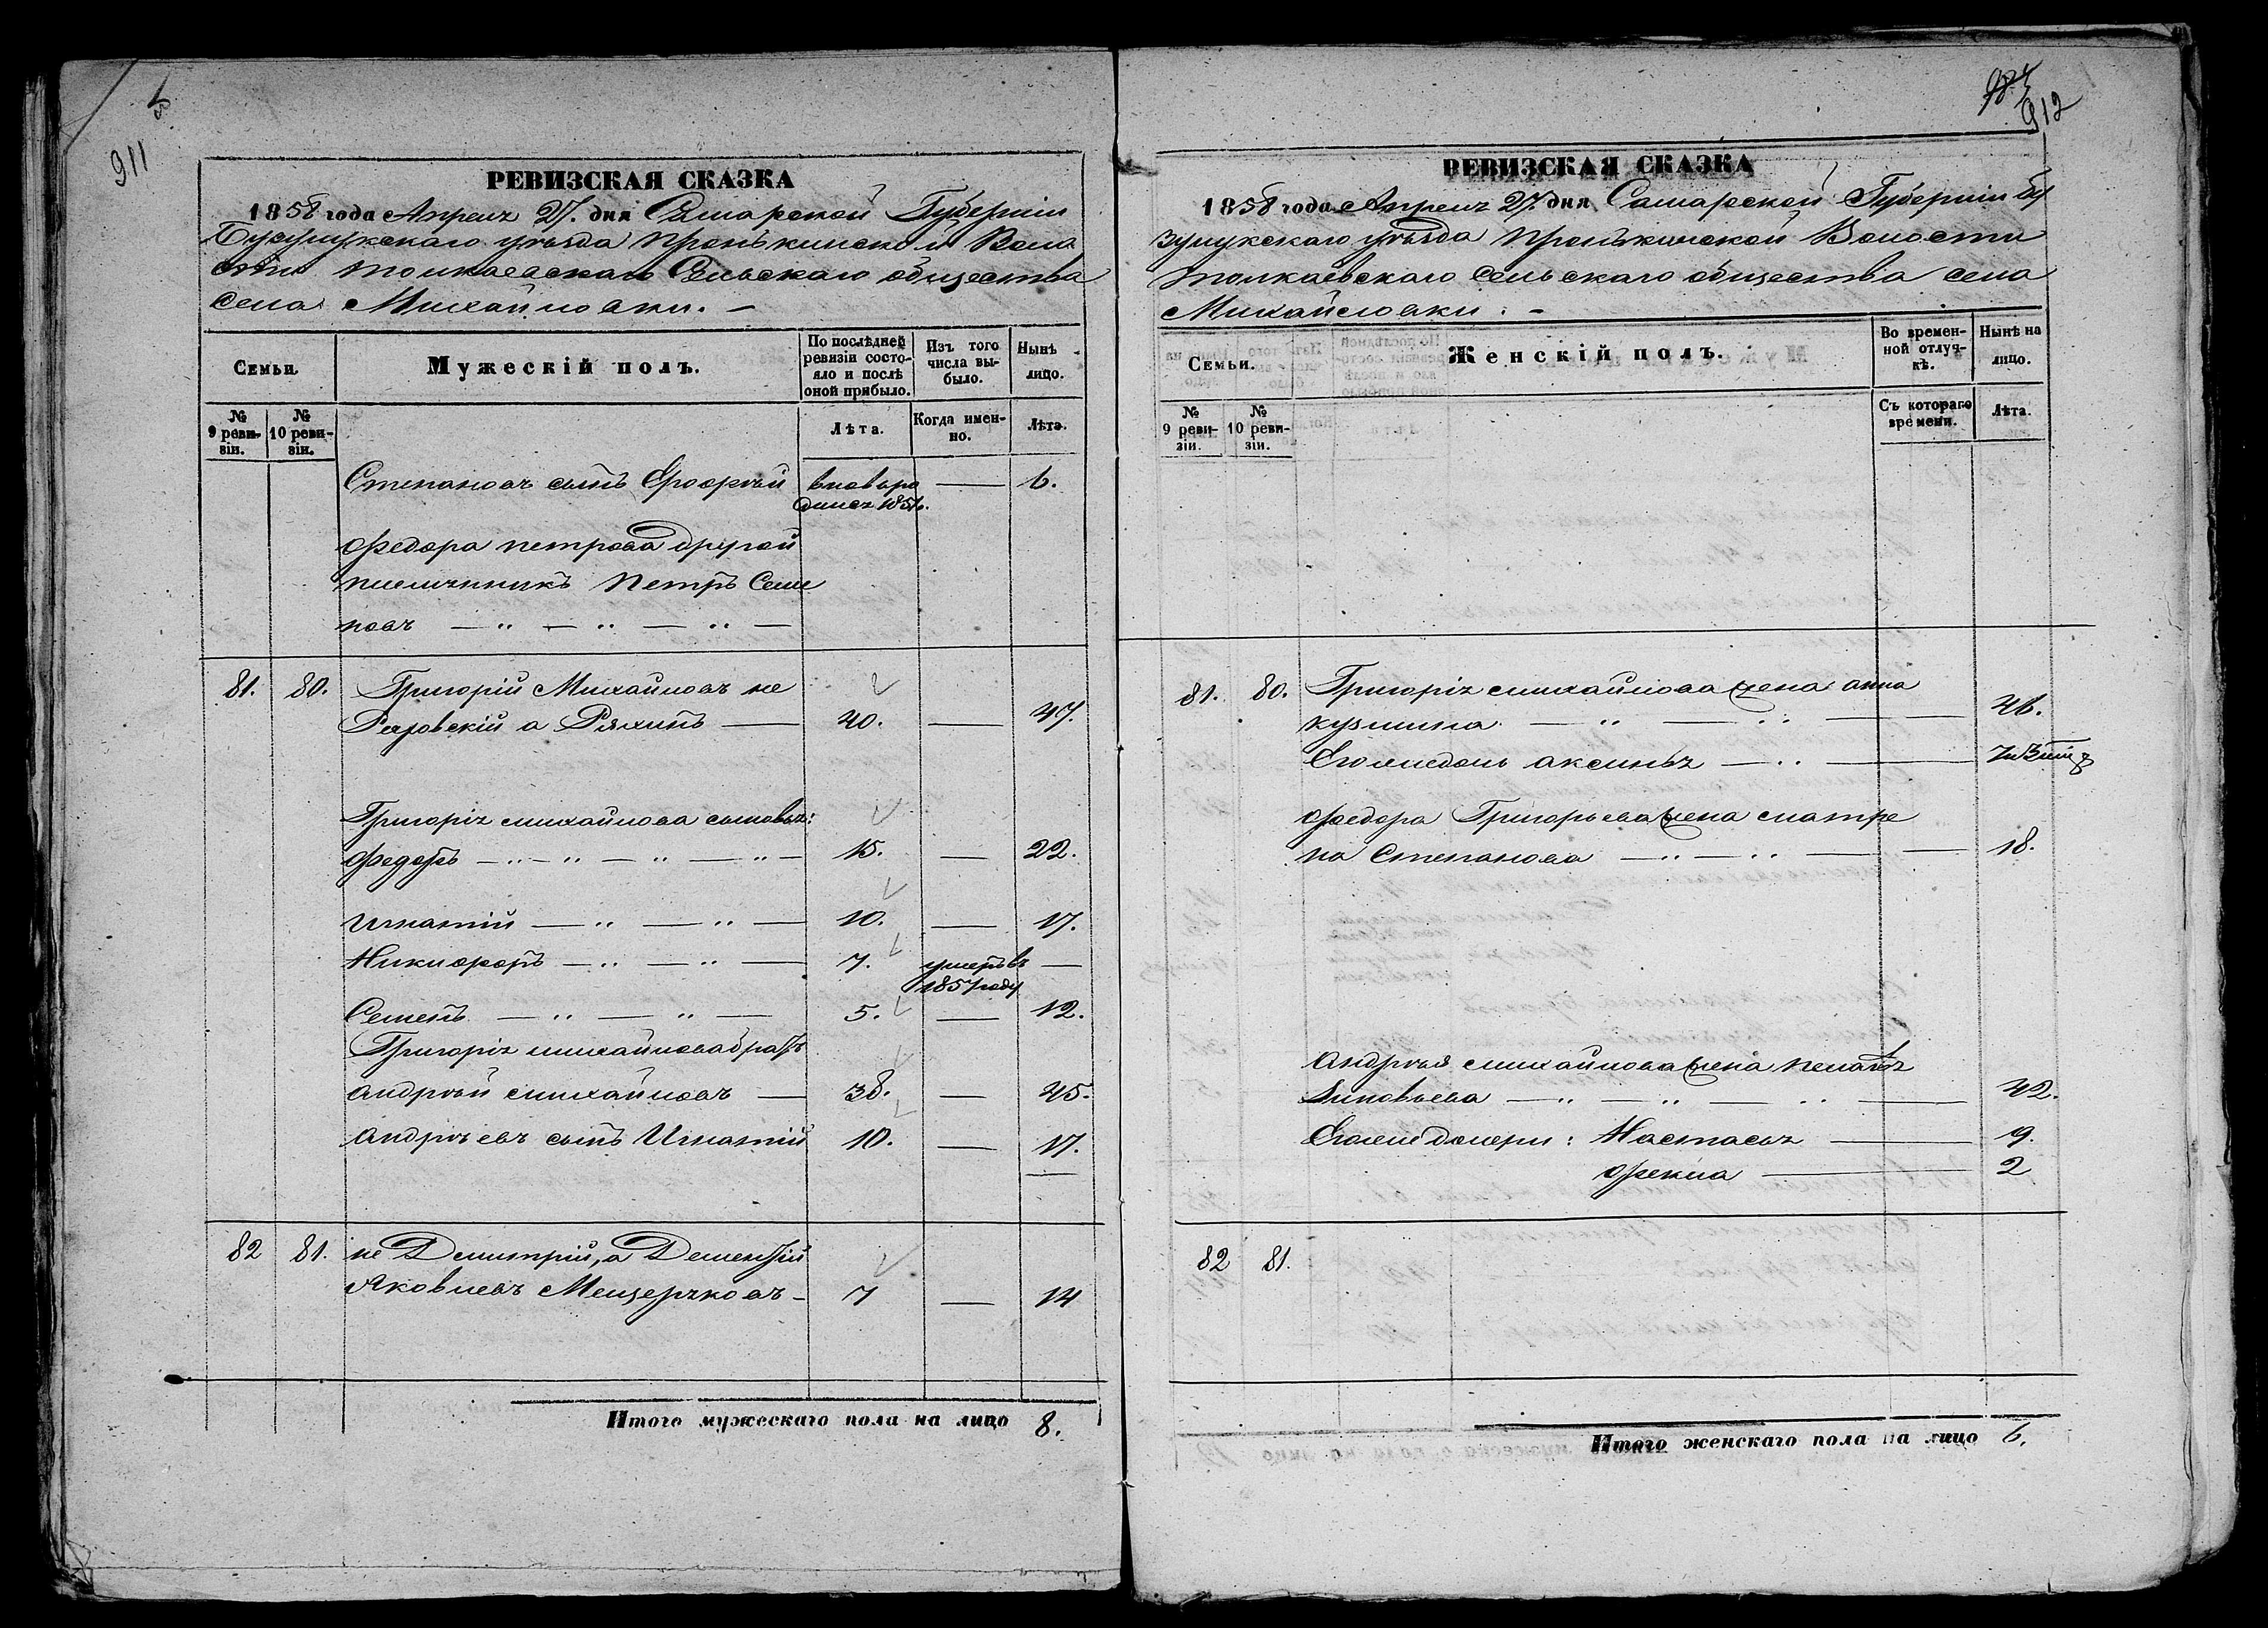 911
РЕВИЗСКАЯ СКАЗКА
1858 года Апреля 27. дня Самарской Губерніи
Бузулукскаго уѣзда Пронькинской Воло
сти Толкаевскаго Сельскаго общества
села Михайловки. –
Семьи.
Мужескій полъ.
По послѣдней ревизіи состояло и послѣ оной прибыло.
Изъ того числа выбыло.
Нынѣ на лицо.
№ 9 ревизіи.
№ 10 ревизіи.
Лѣта.
Когда именно.
Лѣта.
Степановъ сынъ Ерофѣй вновь ро — 6.
дился 1851г.
Федора Петрова другой
племянникъ Петръ Семе
новъ — „ — „ — „ —
81. 80. Григорій Михайловъ не
Разовскій а Ряхинъ — 40. — 47.
Григорія Михайлова сыновья:
Федоръ — „ — „ — „ — „ — 15. — 22.
Игнатій — „ — „ — 10. — 17.
Никифоръ — „ — „ — 7. умеръ въ —
1857 году
Семенъ — „ — „ — 5. — 12.
Григорія Михайлова братъ
Андрѣй Михайловъ — 38. — 45.
Андрѣевъ сынъ Игнатій 10. — 17.
82 81. не Дмитрій, а Дементій
Яковлевъ Мещеряковъ – 7 — 14
Итого мужескаго пола на лицо 8.
912
РЕВИЗСКАЯ СКАЗКА
1858 года Апреля 27. дня Самарской Губерніи Бу
зулукскаго уѣзда Пронькинской Волости
Толкаевскаго Сельскаго общества села
Михайловки. –
Семьи.
Женскій полъ.
Во временной отлучкѣ.
Нынѣ на лицо.
№ 9 ревизіи.
№ 10 ревизіи.
Съ котораго времени.
Лѣта.
81. 80. Григорія Михайлова жена Анна
Кузмина — „ — „ — 46.
Егоже дочь Аксинья — „ —
Федора Григорьева жена Матре
на Степанова — „ — „ — 18.
Андрѣя Михайлова жена Пелагѣя
Зиновьева — „ — „ — „ — 42.
Егоже дочери: Настасья — 9.
Фекла — 2
82 81.
Итого женскаго пола на лицо 6.